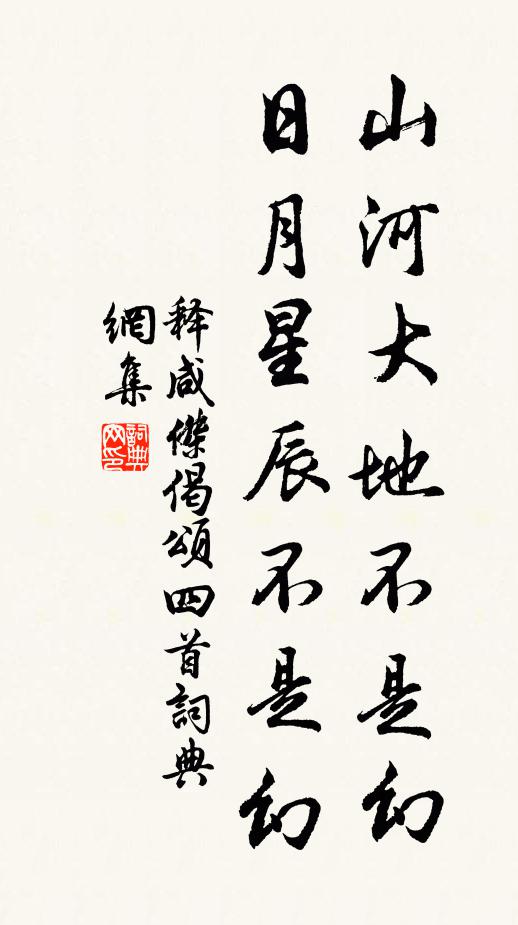 山河大地不是幻
日月星辰不是幻
释咸傑偈頌四首詞典
網集
詞典
网印